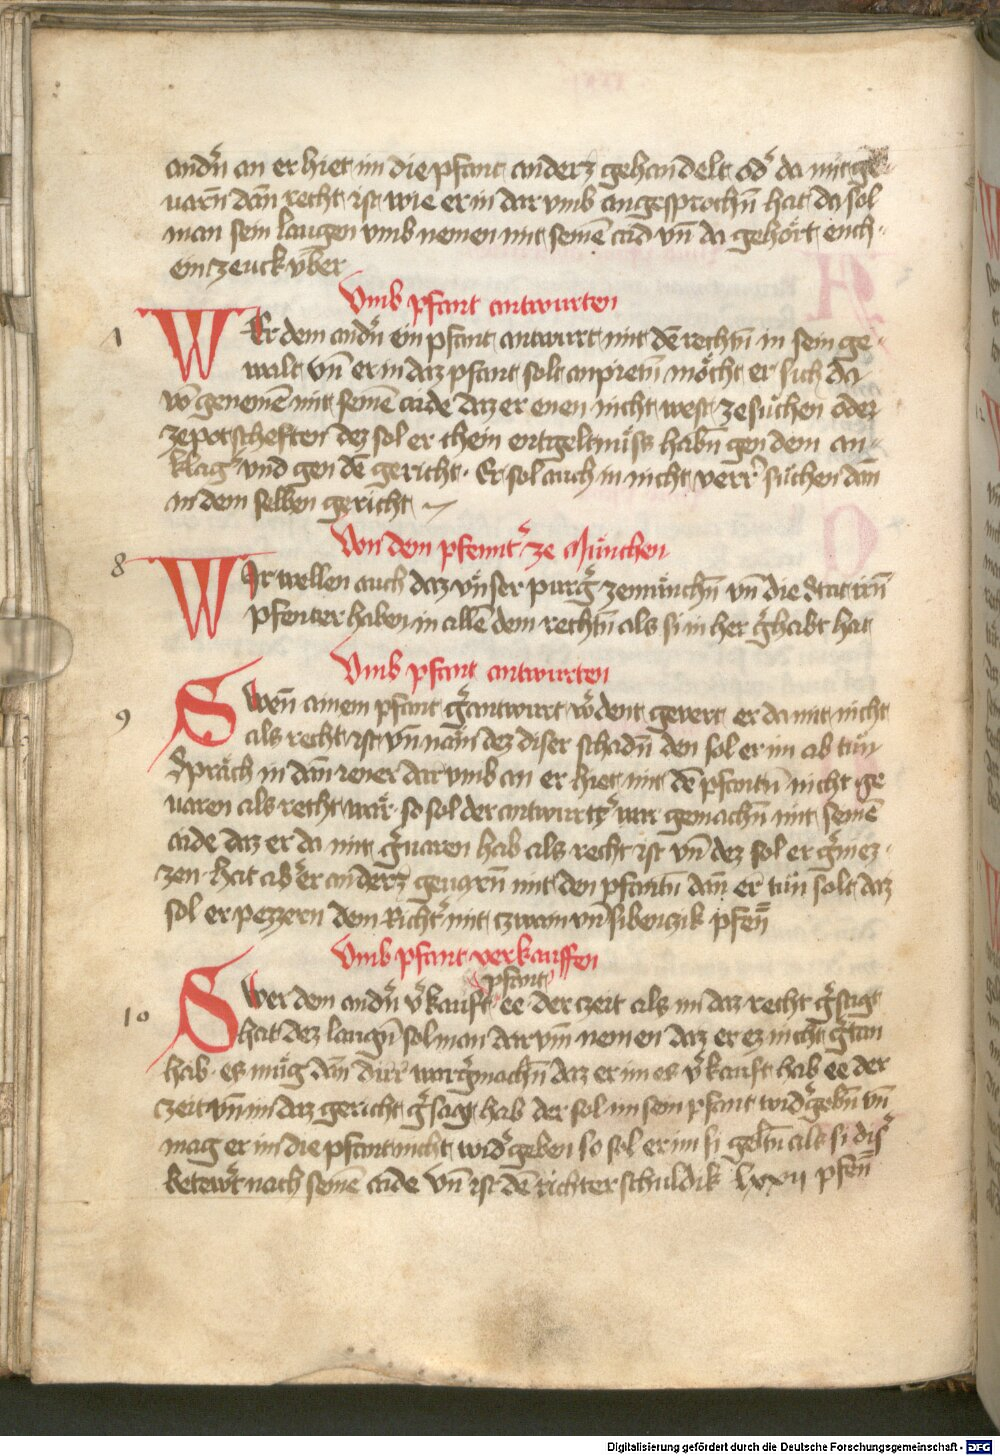 andn̄ an er hiet im die pfant anderz gehandelt od' da mit ge
uarn̄ dan̄ recht ist wie er in dar vmb angesprochn̄ hat da sol
man sein laugen vmb nemen mit seinē aid vn̄ da gehört
ein zeuck vber
Vmb pfant antwurten
Er dem andn̄ ein pfant antwurt mit dē rechtn̄ in sein ge
W
walt vn̄ er in daz pfant solt möcht er sich da
võ genemē mit seinē aide daz er enen nicht west ze suchen oder
ze potscheften dez sol er chein entgeltnuss habn̄ gen dem an
klag' vnd gen dē gericht · Er sol auch in nicht verr' suchen dan̄
in dem selben gericht
Von dem pfennt' ze München
8
W
Ir wellen auch daz vnser purg' ze münchn̄ vn̄ die Stat irn̄
pfenter haben in allē dem rechtn̄ als si in her g'habt hat
Vmb pfant antwurten
9
S
wen̄ ainem pfant g'antwurt w'dent geuert er da mit nicht
als recht ist vn̄ nām dez diser schadn̄ den sol er im ab tün
Spräch in dan̄ iener dar vmb an er hiet mit dē pfantn̄ nicht ge
uaren als recht wär · so sol der antwurt' war gemachn̄ mit seinē
aide daz er da mit g'uaren hab als recht ist vn̄ dez sol er g'niez
zen · hat ab' er anderz geuarn̄ mit den pfantn̄ dan̄ er tün solt daz
sol er pezzern dem Richt' mit zwain vn̄ sibenczik pfen̄
Vmb pfant verkauffen
pfant
10
S
wer dem andn̄ v'kauft ee der zeit als im daz recht g'sagt
hat dez laugn̄ sol man dar vm̄ nemen daz er ez nicht g'tan
hab · es müg dan̄ war g'machn̄ daz er im es v'kauft hab ee der
zeit vn̄ im daz gericht g'sagt hab der sol im sein pfant wid'gebn̄ vn̄
mag er im die pfant nicht wid'geben so sol er im si geltn̄ als si dis'
betew't nach seinē aide vn̄ ist dē richter schuldik lxxii pfen̄
Digitalisierung gefördert durch die Deutsche Forschungsgemeinschaft - DFG